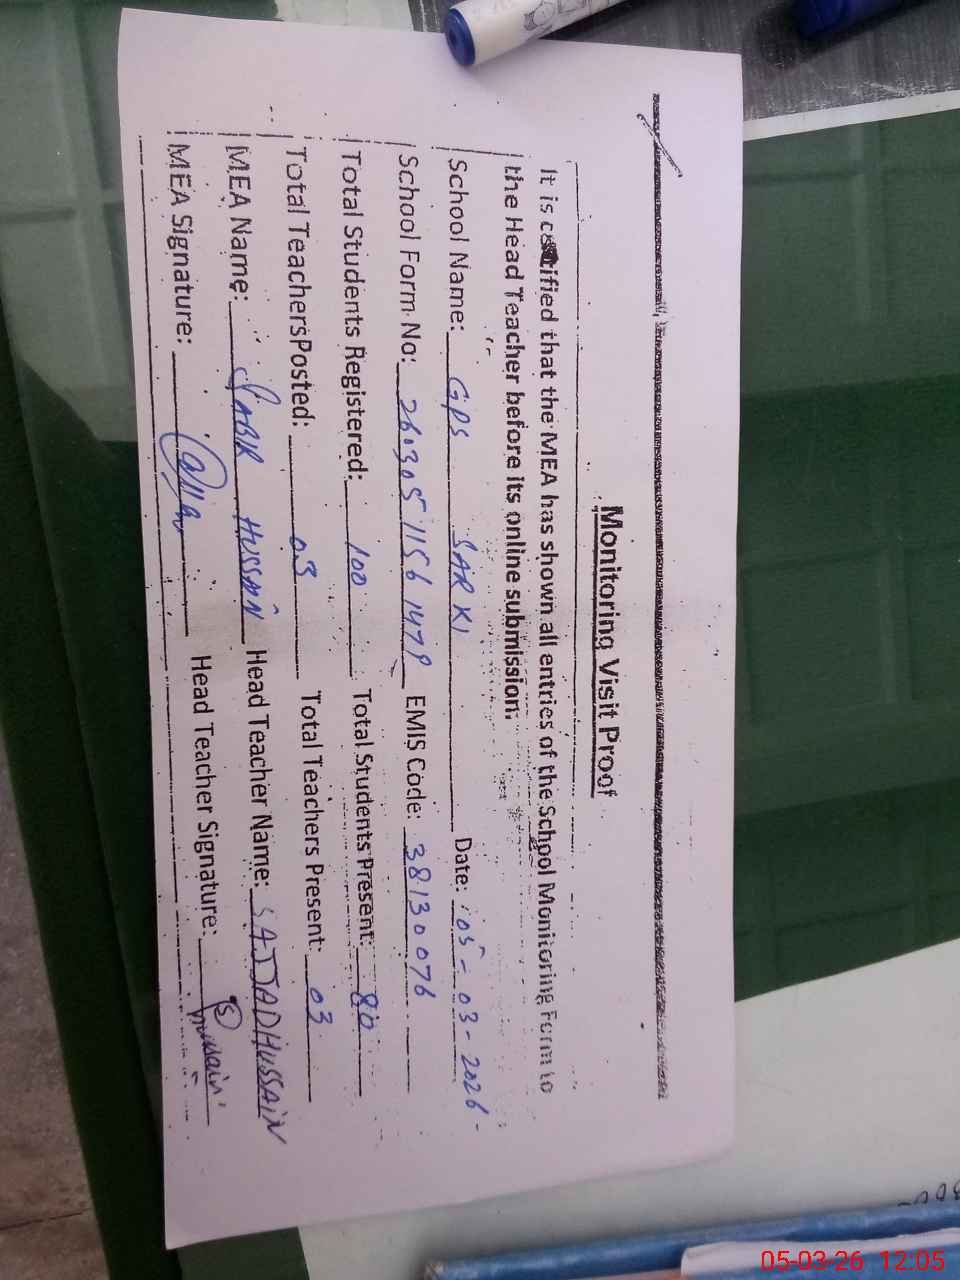 Monitoring Visit Proof
It is certified that the MEA has shown all entries of the School Monitoring Form to
the Head Teacher before its online submission.
School Name: GPS SARKI Date: 05-03-2026
School Form No: 2603051156 1478 EMIS Code: 38130076
Total Students Registered: 100 Total Students Present: 80
Total TeachersPosted: 03 Total Teachers Present: 03
MEA Name: SABIR HUSSAIN Head Teacher Name: SAJJAD HUSSAIN
MEA Signature: Head Teacher Signature: Hussain
05-03-26 12:05